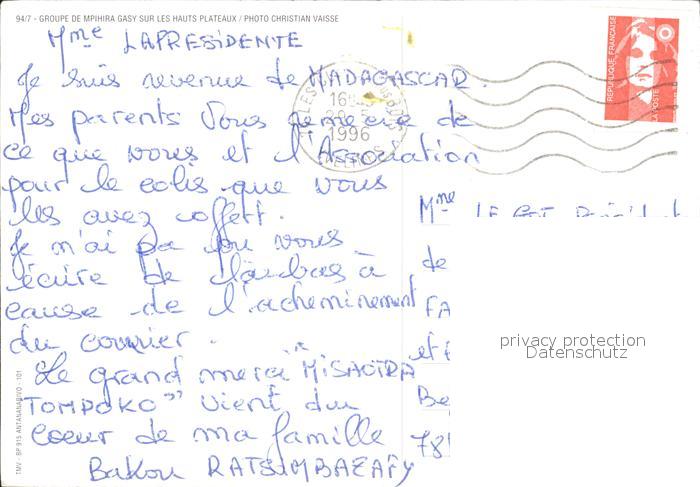 94/7 - GROUPE DE MPIHIRA GASY SUR LES HAUTS PLATEAUX / PHOTO CHRISTIAN VAISSE
Mme LAPRESIDENTE
Je suis revenue de MADAGASCAR.
Mes parents Vous remercie de
ce que vous et l'Association
pour le colis que vous
les avez offert.
Je n'ai pa pu vous
écrire de là-bas à
cause de l'acheminement
du courrier.
Le grand merci "MISAOTRA
TOMPOKO" vient du
Coeur de ma famille
Bakou RATSIMBAZAFY
Mme
de
FA
et
Be
78
REPUBLIQUE FRANÇAISE
LA POSTE
16
1996
privacy protection
Datenschutz
TMV - BP 915 ANTANANARIVO - 101